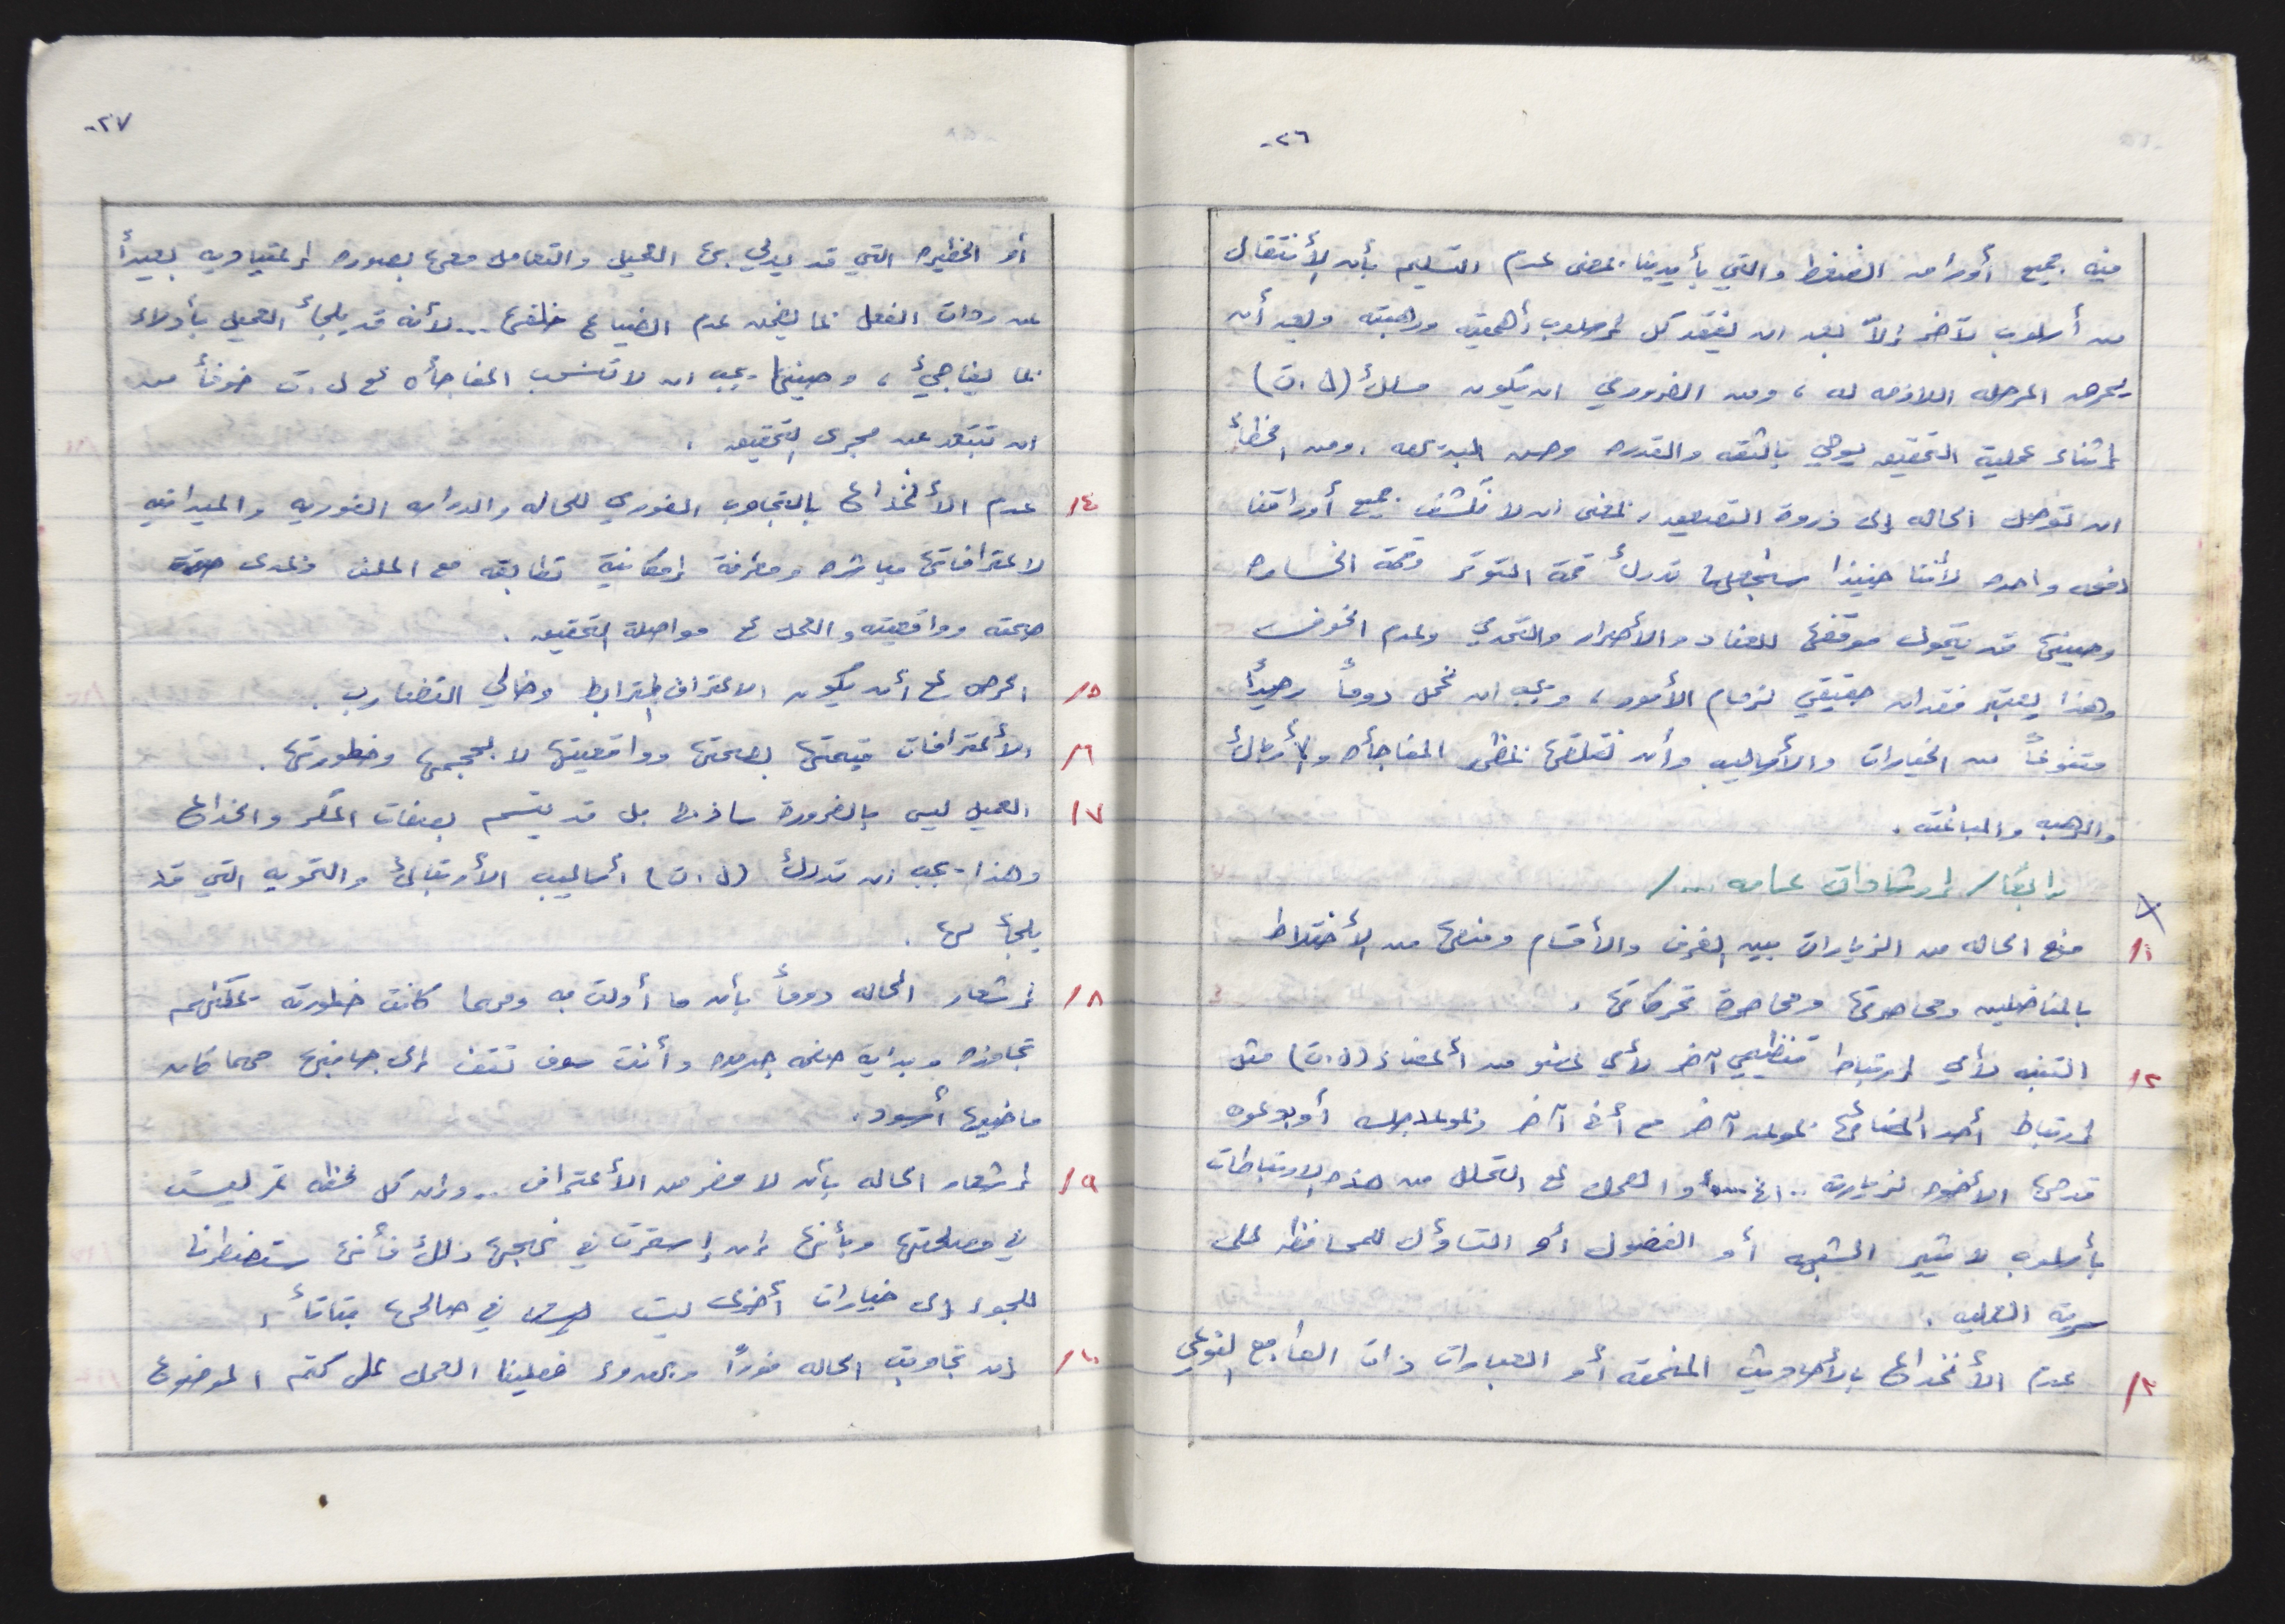 ٢٦-
منه جميع أوراق الضغط والتي بأيدينا بمعنى عدم التسليم بأن الأنتقال
من أسلوب لآخر إلاّ بعد ان يفقد كل إسلوب أهميته ورهبته وبعد أن
المرحله اللازمه له ، ومن الضروري ان يكون مسلك (ل.ت)
إثناء عملية التحقيق يوحي بالثقه والقدره وحسن البديهه . ومن الخطأ
ان توصل الحاله إلى ذروة التصعيد ، بمعنى ان لا نكشف جميع أوراقنا
دفعه واحده لأننا حينئذا سنجعلها تدرك قمة التوتر وقمة الخساره
وحينها قد يتحول موقفها للعناد والأصرار والتحدي وعدم الخوف
وهذا يعتبر فقدان حقيقي لزمام الأمور ، ويجب ان نحمل دوماً رصيداً
متنوعاً من الخيارات والأساليب وأن نغلفها بمظهر المفاجأه والأرباك
والرهبه والمباغته .
رابعًا / إرشادات عامه ... /
١١/ منع الحاله من الزيارات بين الغرف والأقسام ومنعها من الأختلاط
بالمناضلين ومحاصرتها ومحاصرة تحركاتها .
١٢/ التنبه لأي إرتباط تنظيمي آخر لأي عضو من أعضاء (ل.ت) مثل
إرتباط أحد أعضائها بموعد آخر مع أخ آخر
الأخوه لزيارته .. الخ والعمل على التحلل من هذه الارتباطات
بأسلوب لا يثير الشبهه أو الفضول أو التساؤل للمحافظه على
سرية العمليه .
١٣/ عدم الأنخداع بالأحاديث المنمقه أو العبارات ذات الطابع النوعي
٢٧-
أو الخطيره التي قد يدلي بها العميل والتعامل معها بصوره إعتياديه بعيداً
عن ردات الفعل بما يضمن عدم الضياع خلفها ... لأنه قد يلجأ العميل بأدلاء
بما يفاجئ ، وحينها يجب ان لا تنسحب المفاجأه على ل.ت خوفاً من
ان تبتعد عن مجرى التحقيق .
١٤/ عدم الأنخداع بالتجاوب الفوري للحاله والدراسه الفوريه والميدانيه
لاعترافاتها مباشره ومعرفة إمكانية تطابقه مع الملف ومدى
صحته وواقعيته والعمل على مواصلة التحقيق .
١٥/ الحرص على أن يكون الاعتراف مترابط وخالي التضارب .
١٦/ الأعترافات قيمتها بصحتها وواقعيتها لا بحجمها وخطورتها .
١٧/ العميل ليس بالضرورة ساذجا بل قد يتسم بصفات المكر والخداع
وهذا يجب ان تدرك (ل.ت) أساليب الأرتباك والتمويه التي قد
يلجأ لها .
١٨/ إشعار الحاله دوماً بأن ما أدلت به ومهما كانت خطورته يمكنهم
تجاوزه وبداية صفحه جديده وأنت سوف تقف إلى جانبها مهما كان
ماضيها أسود .
١٩/ إشعار الحاله بأن لا مفر من الأعتراف .. وان كل لحظه تمر ليست
في مصلحتها وبأنها إن إستمرت في نهجها ذلك فأنها ستضطرنا
للجوء إلى خيارات أخرى ليست في صالحها بتاتاً .
٢٠/ إن تجاوبت الحاله فوراً وبهدوء فعلينا العمل على كتم الموضوع